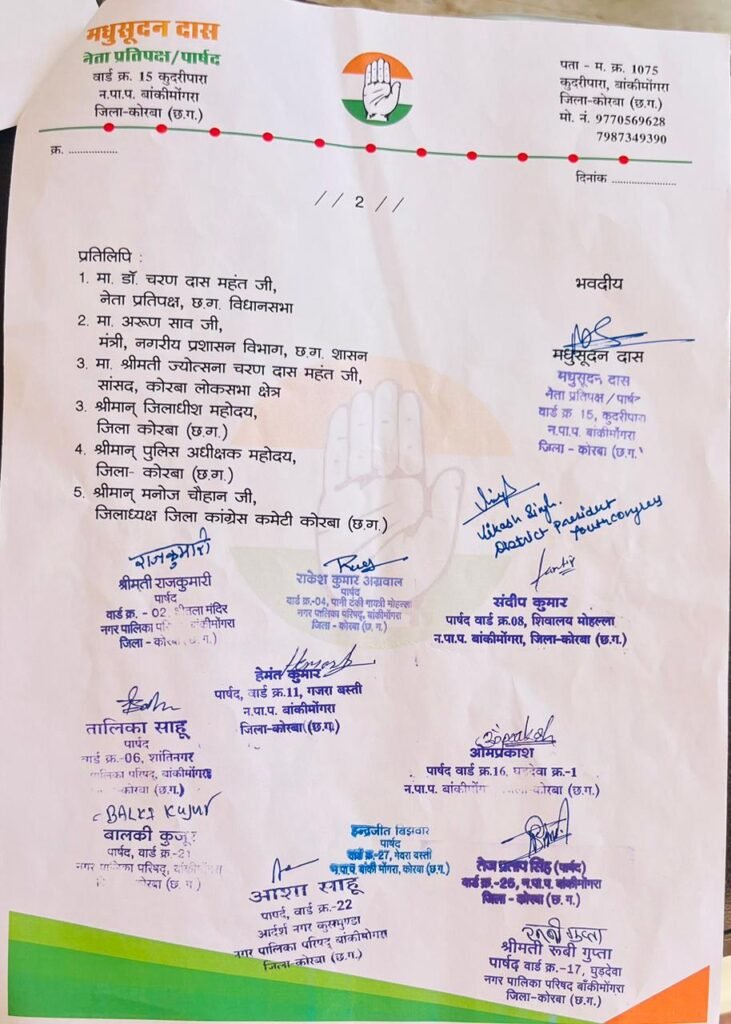 मधुसूदन दास
नेता प्रतिपक्ष/पार्षद
वार्ड क्र. 15 कुदरीपारा
न.पा.प. बांकीमोंगरा
जिला-कोरबा (छ.ग.)
पता - म. क्र. 1075
कुदरीपारा, बांकीमोंगरा
जिला-कोरबा (छ.ग.)
मो. नं. 9770569628
7987349390
क्र. ..................
दिनांक ......................
// 2 //
प्रतिलिपि :
1. मा. डॉ. चरण दास महंत जी,
नेता प्रतिपक्ष, छ.ग. विधानसभा
2. मा. अरूण साव जी,
मंत्री, नगरीय प्रशासन विभाग, छ.ग. शासन
3. मा. श्रीमती ज्योत्सना चरण दास महंत जी,
सांसद, कोरबा लोकसभा क्षेत्र
3. श्रीमान् जिलाधीश महोदय,
जिला कोरबा (छ.ग.)
4. श्रीमान् पुलिस अधीक्षक महोदय,
जिला- कोरबा (छ.ग.)
5. श्रीमान् मनोज चौहान जी,
जिलाध्यक्ष जिला कांग्रेस कमेटी कोरबा (छ.ग.)
भवदीय
मधुसूदन दास
मधुसूदन दास
नेता प्रतिपक्ष / पार्षद
वार्ड क्र 15, कुदरीपारा
न.पा.प. बांकीमोंगरा
जिला - कोरबा (छ.ग.
Vikash Singh.
District President
Youth congress
राजकुमारी
श्रीमती राजकुमारी
पार्षद
वार्ड क्र. - 02 मंदिर
नगर पालिका बांकीमोंगरा
जिला - कोरबा (छ. ग.)
राकेश कुमार अग्रवाल
पार्षद
वार्ड क्र.-04, पानी टंकी गायत्री मोहल्ला
नगर पालिका परिषद्, बांकीमोंगरा
जिला - कोरबा (छ. ग.)
संदीप कुमार
पार्षद वार्ड क्र.08, शिवालय मोहल्ला
न.पा.प. बांकीमोंगरा, जिला-कोरबा (छ.ग.)
हेमंत कुमार
पार्षद, वार्ड क्र.11, गजरा बस्ती
न.पा.प. बांकीमोंगरा
जिला-कोरबा (छ.ग.)
तालिका साहू
पार्षद
वार्ड क्र.-06, शांतिनगर
पालिका परिषद्, बांकीमोंगरा
कोरबा (छ.ग.)
ओमprakash
ओमप्रकाश
पार्षद वार्ड क्र.16, घुडदेवा क्र.-1
न.पा.प. बांकीमोंग कोरबा (छ.ग.)
BALKI KUJUR
बालकी कुजूर
पार्षद, वार्ड क्र.-21
नगर पालिका परिषद्, बांकीमोंगरा
कोरबा (छ. ग.)
इन्द्रजीत बिंझवार
पार्षद
वार्ड क्र.-27, गेवरा बस्ती
न.पा.प. बांकी मोंगरा, कोरबा (छ.ग.)
तेज प्रताप सिंह (पार्षद)
वार्ड क्र.-25, न.पा.प. बांकीमोंगरा
जिला - कोरबा (छ.ग.)
आशा साहू
पार्षद, वार्ड क्र.-22
आर्दश नगर कुसमुण्डा
नगर पालिका परिषद् बांकीमोंगरा
जिला-कोरबा (छ.ग.)
रूबी गुप्ता
श्रीमती रूबी गुप्ता
पार्षद वार्ड क्र.-17, घुड़देवा
नगर पालिका परिषद बाँकीमोंगरा
जिला-कोरबा (छ.ग.)